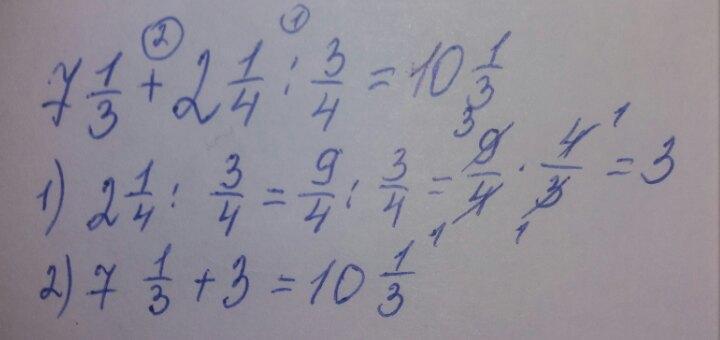 ② ①
7 1/3 + 2 1/4 : 3/4 = 10 1/3
1) 2 1/4 : 3/4 = 9/4 : 3/4 = 3 9/4 1 · 4 1/3 1 = 3
2) 7 1/3 + 3 = 10 1/3